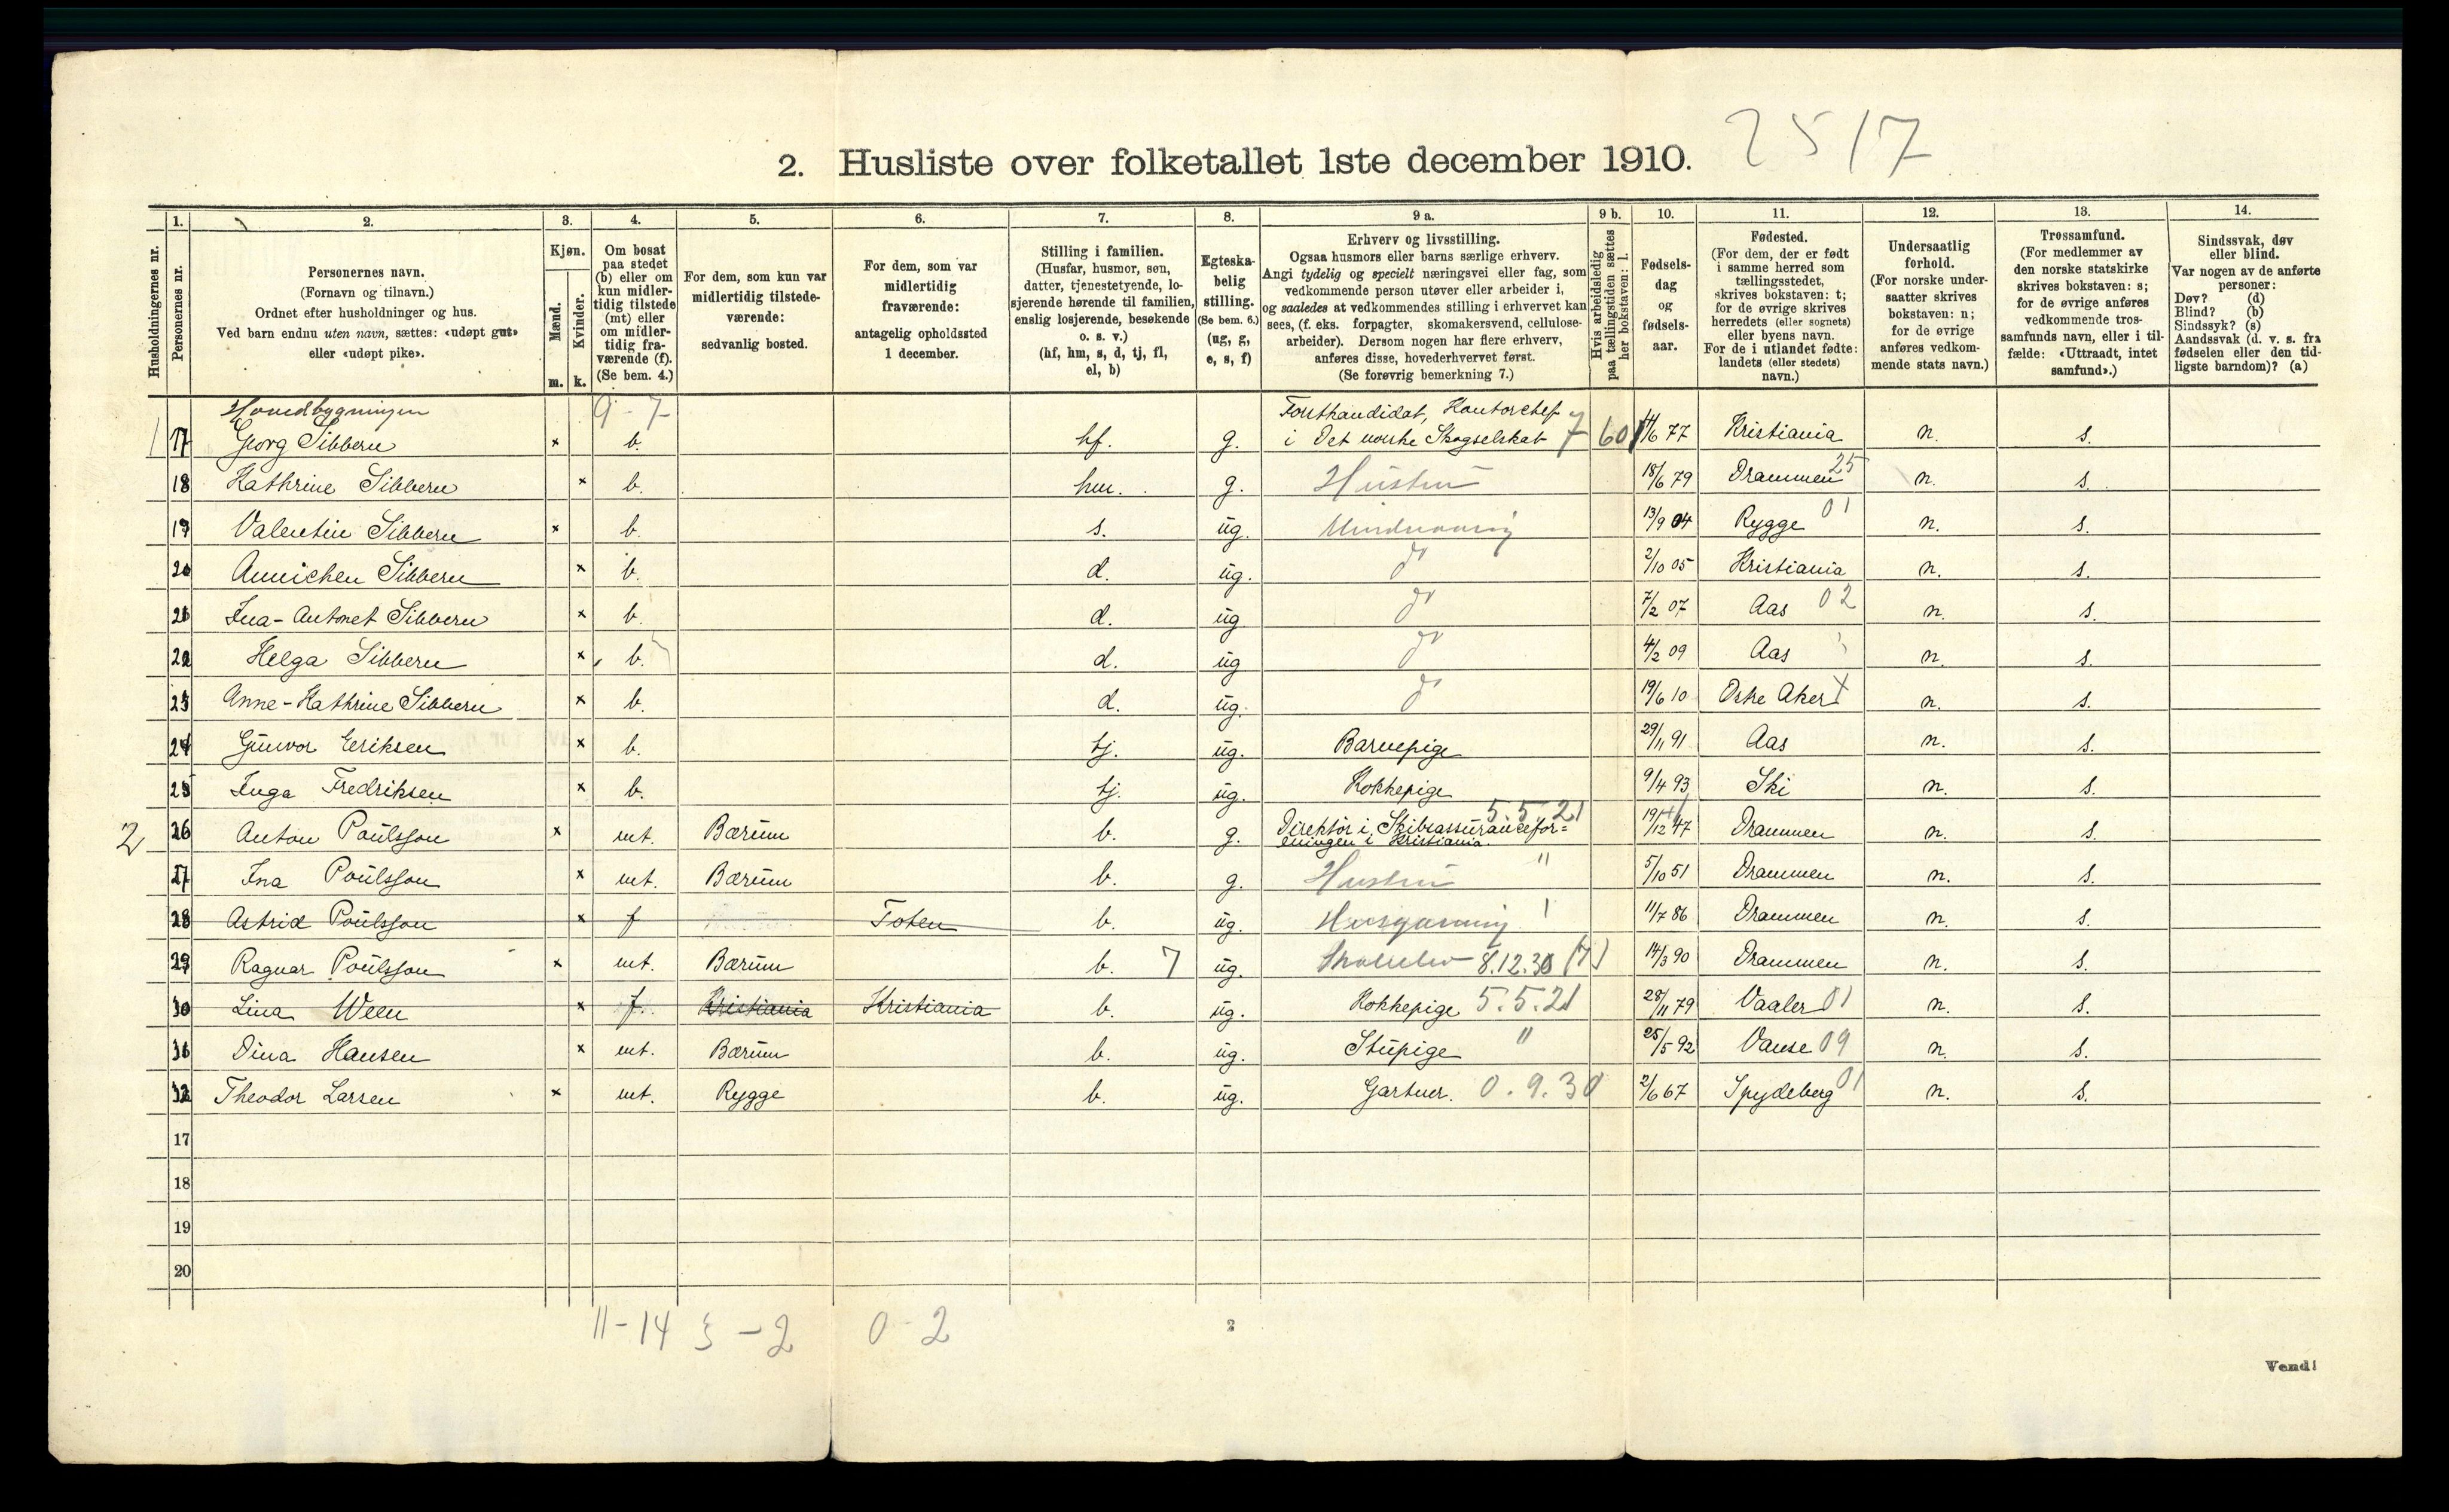 2. Husliste over folketallet 1ste december 1910. 2517
1. 2. 3. 4. 5. 6. 7. 8. 9 a. 9 b. 10. 11. 12. 13. 14.
Husholdningernes nr.
Personernes nr.
Personernes navn.
(Fornavn og tilnavn.)
Ordnet efter husholdninger og hus.
Ved barn endnu uten navn, sættes: «udøpt gut»
eller «udøpt pike».
Kjøn.
Mænd.
Kvinder.
m. k.
Om bosat
paa stedet
(b) eller om
kun midler-
tidig tilstede
(mt) eller
om midler-
tidig fra-
værende (f).
(Se bem. 4.)
For dem, som kun var
midlertidig tilstede-
værende:
sedvanlig bosted.
For dem, som var
midlertidig
fraværende:
antagelig opholdssted
1 december.
Stilling i familien.
(Husfar, husmor, søn,
datter, tjenestetyende, lo-
sjerende hørende til familien,
enslig losjerende, besøkende
o. s. v.)
(hf, hm, s, d, tj, fl,
el, b)
Egteska-
belig
stilling.
(Se bem. 6.)
(ug, g,
e, s, f)
Erhverv og livsstilling.
Ogsaa husmors eller barns særlige erhverv.
Angi tydelig og specielt næringsvei eller fag, som
vedkommende person utøver eller arbeider i,
og saaledes at vedkommendes stilling i erhvervet kan
sees, (f. eks. forpagter, skomakersvend, cellulose-
arbeider). Dersom nogen har flere erhverv,
anføres disse, hovederhvervet først.
(Se forøvrig bemerkning 7.)
Hvis arbeidsledig
paa tællingstiden sættes
her bokstaven: l.
Fødsels-
dag
og
fødsels-
aar.
Fødested.
(For dem, der er født
i samme herred som
tællingsstedet,
skrives bokstaven: t;
for de øvrige skrives
herredets (eller sognets)
eller byens navn.
For de i utlandet fødte:
landets (eller stedets)
navn.)
Undersaatlig
forhold.
(For norske under-
saatter skrives
bokstaven: n;
for de øvrige
anføres vedkom-
mende stats navn.)
Trossamfund.
(For medlemmer av
den norske statskirke
skrives bokstaven: s;
for de øvrige anføres
vedkommende tros-
samfunds navn, eller i til-
fælde: «Uttraadt, intet
samfund».)
Sindssvak, døv
eller blind.
Var nogen av de anførte
personer:
Døv? (d)
Blind? (b)
Sindssyk? (s)
Aandssvak (d. v. s. fra
fødselen eller den tid-
ligste barndom)? (a)
Hovedbygningen 9-7 Forstkandidat, Kontorchef
1 17 Georg Sibbern x b. hf. g. i Det norske Skogselskab 7 60 /6 77 Kristiania n. s.
18 Kathrine Sibbern x b. hm. g. Hustru 18/6 79 Drammen 25 n. s.
19 Valentin Sibbern x b. s. ug. 13/9 04 Rygge 01 n. s.
20 Annichen Sibbern x b. d. ug. do 2/10 05 Kristiania n. s.
21 Ina-Antonet Sibbern x b. d. ug do 7/2 07 Aas 02 n. s.
22 Helga Sibbern x b. d. ug do 4/2 09 Aas n. s.
23 Anne-Kathrine Sibbern x b. d. ug. do 19/6 10 Østre Aker n. s.
24 Gunvor Eriksen x b. tj. ug. Barnepige 29/11 91 Aas n. s.
25 Inga Fredriksen x b. tj. ug. Kokkepige 9/4 93 Ski n. s.
2 26 Anton Poulsson x mt. Bærum b. g. Direktør i Skibsassurancefor= 5.5.21 19/12 47 Drammen n. s.
eningen i Kristiania.
27 Ina Poulsson x mt. Bærum b. g. Hustru " 5/10 51 Drammen n. s.
28 Astrid Poulsson x f Toten b. ug. Husgjerning 11/7 86 Drammen n. s.
29 Ragnar Poulsson x mt. Bærum b. 7 ug. 8.12.30 (7) 14/3 90 Drammen n. s.
30 Lina Ween x f. Kristiania Kristiania b. ug. Kokkepige 5.5.21 28/11 79 Vaaler 01 n. s.
31 Dina Hansen x mt. Bærum b. ug. Stupige " 25/5 92 Vanse 09 n. s.
32 Theodor Larsen x mt. Rygge b. ug. Gartner. 0.9.30 2/6 67 Spydeberg 01 n. s.
17
18
19
20
11-14 3-2 0-2
2
Vend!